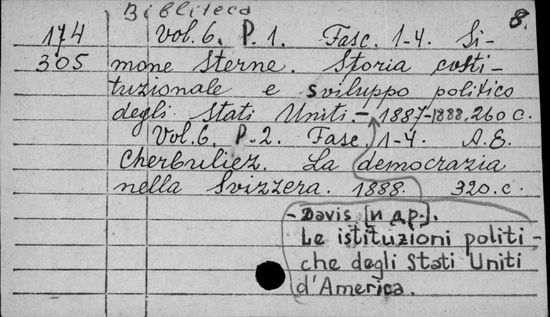 Biblioteca 8.
174 Vol. 6. P. 1. Fasc. 1-4. Si-
305 mone Sterne. Storia costi-
tuzionale e sviluppo politico
degli Stati Uniti - 1887-1888. 260 c.
Vol. 6. P. 2. Fasc. 1-4. A. E.
Cherbuliez. La democrazia
nella Svizzera. 1888. 320. c.
- Davis [и др.].
Le istituzioni politi-
che degli Stati Uniti
d'America.